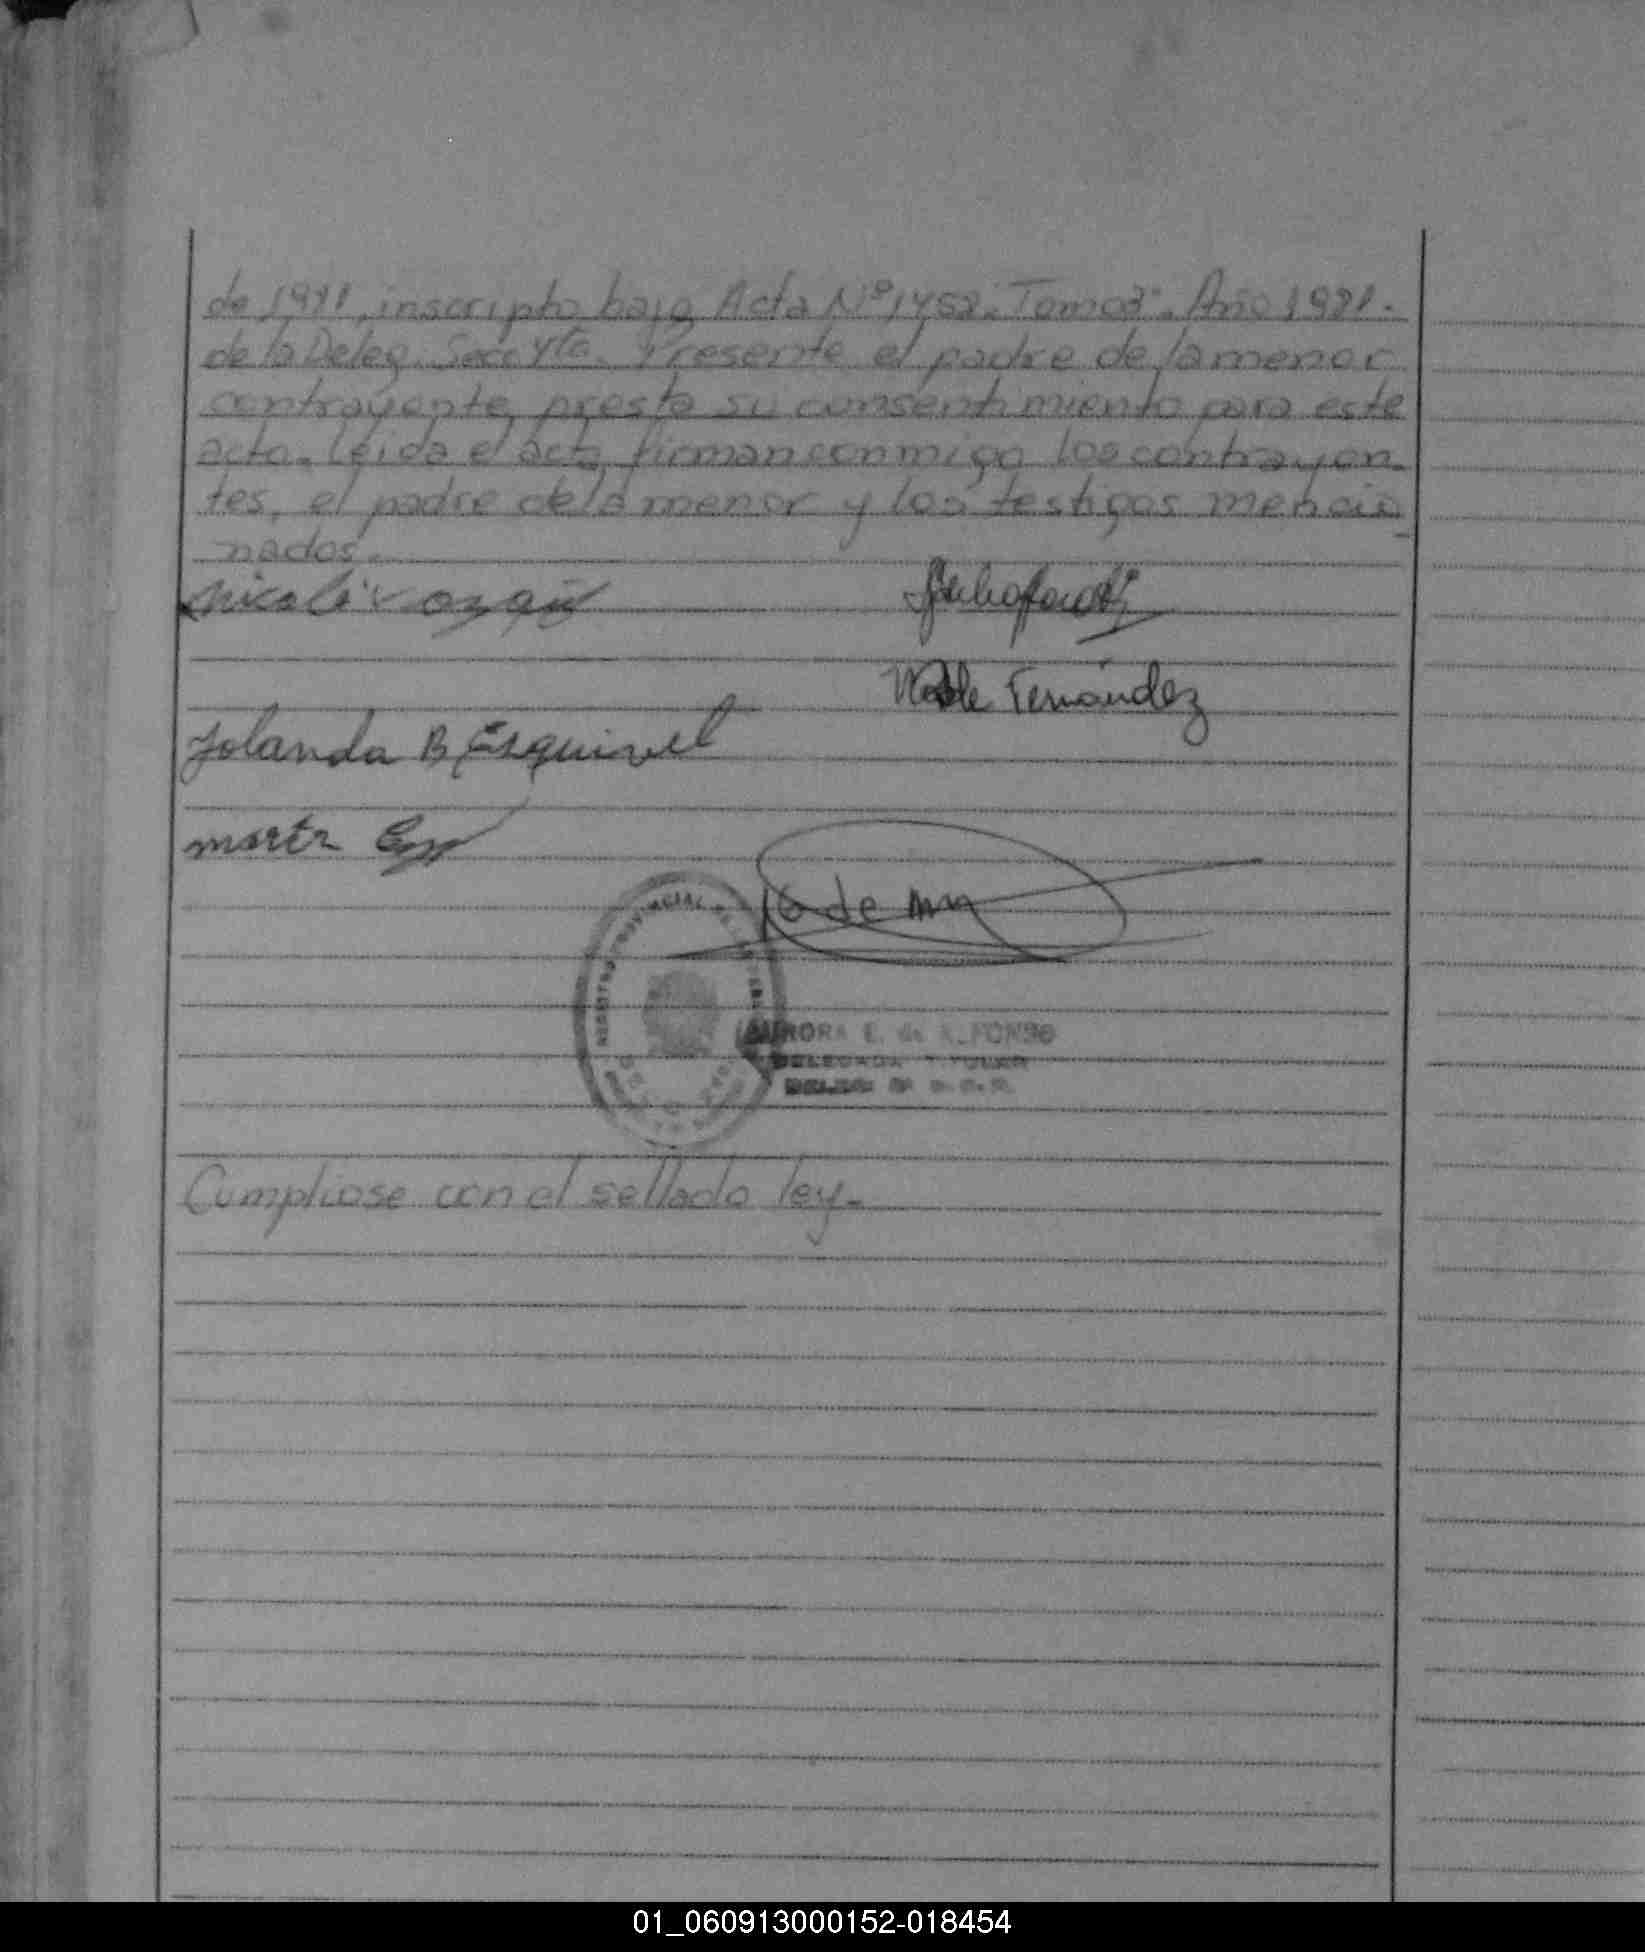 de 19 , inscripto bajo Acta Nº 1452. Tomo 3º. Año 1981.
de la Deleg. Secc yta. Presente el padre de la menor
contrayente, presta su consentimiento para este
acto. Leida el acta, firman conmigo los contrayen-
tes, el padre de la menor y los testigos mencio-
nados.
Wolde Fernández
Yolanda B Esquivel
marta
de
REGISTRO PROVINCIAL DE LAS
AURORA E. de ALFONSO
DELEGADA TITULAR
Cumpliose con el sellado ley.
01_060913000152-018454